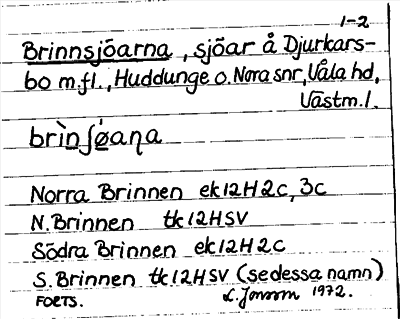 1-2
Brinnsjöarna, sjöar å Djurkars-
bo m.fl., Huddunge o. Nora snr, Våla hd,
Västm.l.
brìnʃǿaɳa
Norra Brinnen ek12H2c, 3c
N. Brinnen tk12HSV
Södra Brinnen ek12H2c
S. Brinnen tk12HSV (se dessa namn)
FOETS. L. Jonsson 1972.